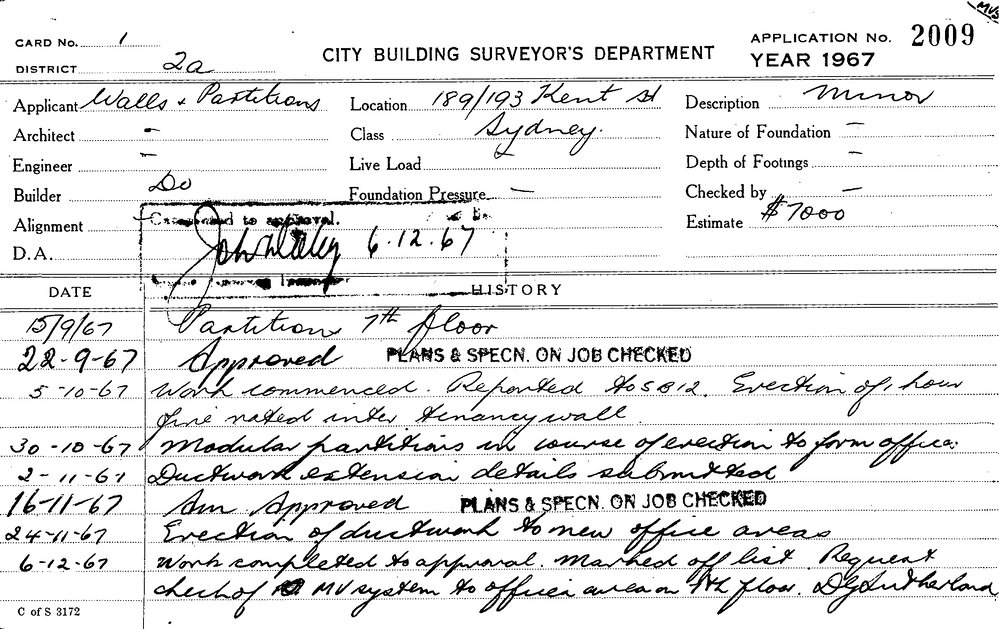 MVS
CARD No. 1
DISTRICT 2a
CITY BUILDING SURVEYOR'S DEPARTMENT
APPLICATION No. 2009
YEAR 1967
Applicant Walls & Partitions
Location 189/193 Kent St
Description Minor
Architect -
Class Sydney.
Nature of Foundation -
Engineer -
Live Load -
Depth of Footings -
Builder Do
Foundation Pressure -
Checked by -
Alignment
to approval.
Estimate $7000
D.A.
6.12.67
DATE
HISTORY
15/9/67 Partitions 7th floor
22-9-67 Approved PLANS & SPECN. ON JOB CHECKED
5-10-67 Work commenced. Reported to SB12. Erection of 1 hour
fire rated inter tenancy wall
30-10-67 Modular partitions in course of erection to form offices
2-11-67 Ductwork extension details submitted
16-11-67 Am Approved PLANS & SPECN. ON JOB CHECKED
24-11-67 Erection of ductwork to new office areas
6-12-67 Work completed to approval. Marked off list. Request
check of MV system to offices area on 7th floor. DG Sutherland
C of S 3172